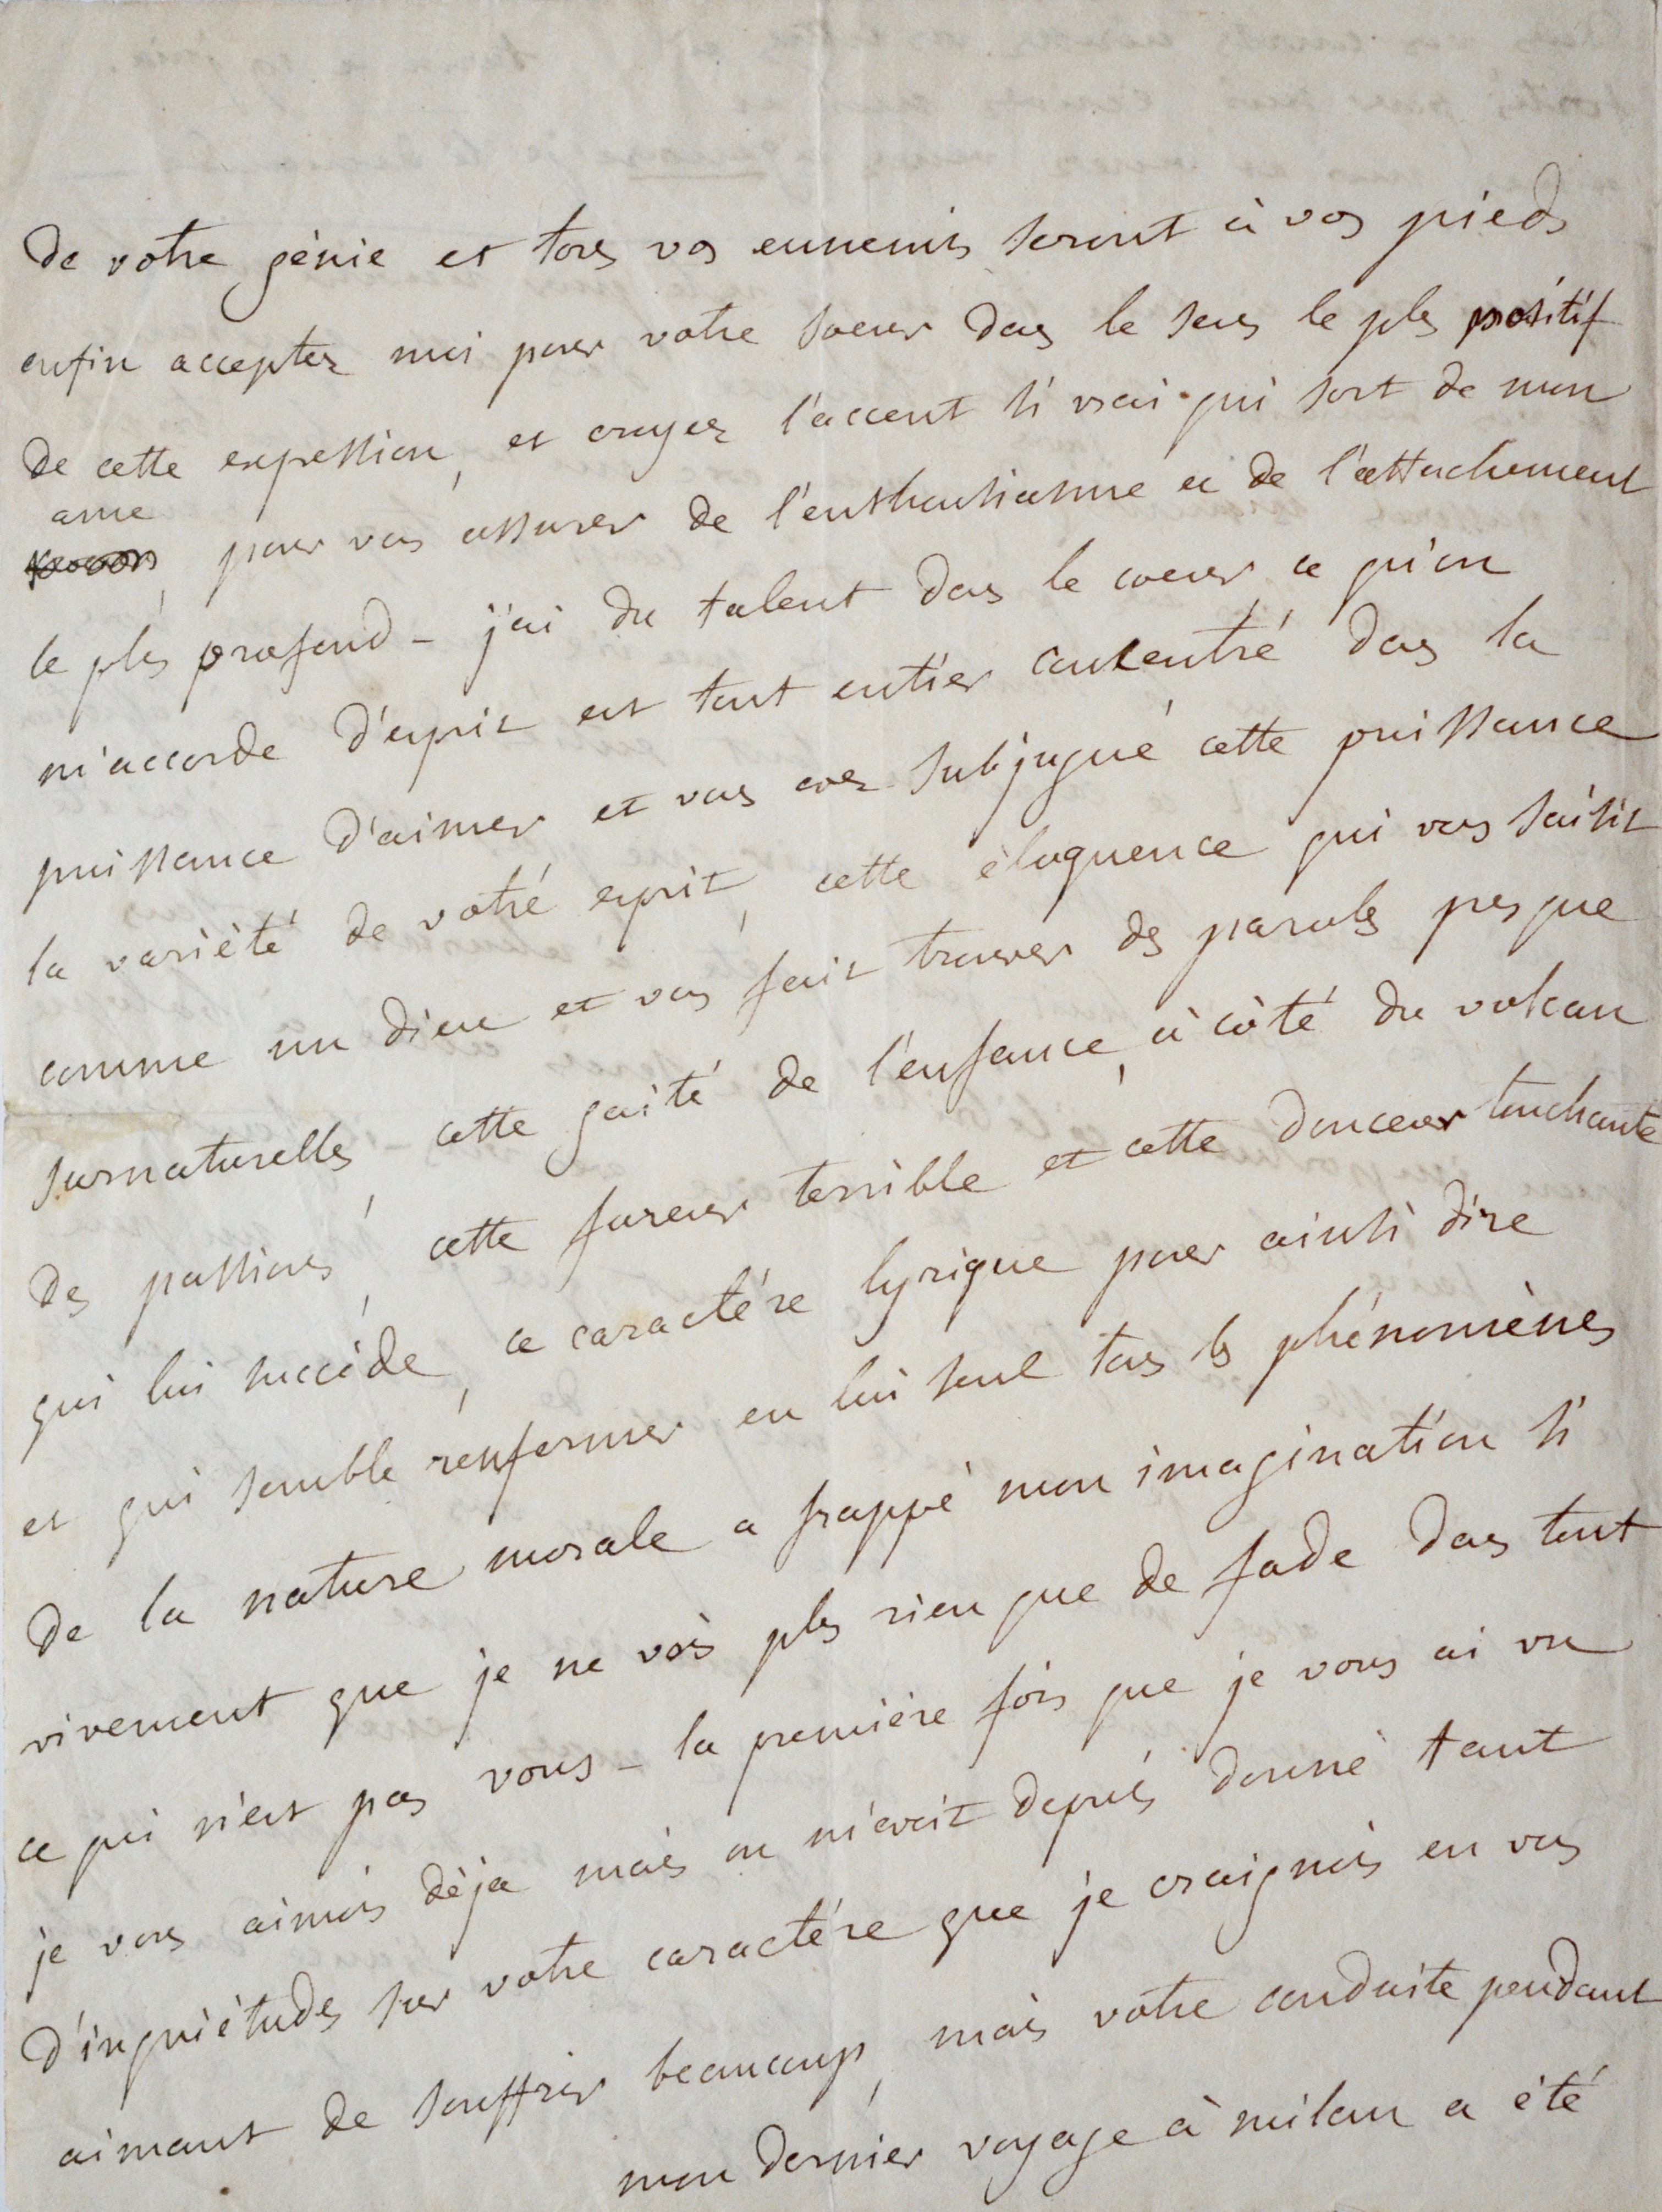 de votre génie et tous vos ennemis seront à vos pieds
enfin acceptez moi pour votre soeur dans le sens le plus positif
de cette expression, et croyez l'accent si vrai qui sort de mon
ame
, pour vous assurer de l'enthousiasme et de l'attachement
le plus profond – j'ai du talent dans le coeur, ce qu'on
m'accorde d'esprit est tout entier concentré dans la
puissance d'aimer et vous avez subjugué cette puissance
la variété de votre esprit, cette éloquence qui vous saisit
comme un dieu et vous fait trouver des paroles presque
surnaturelles, cette gaité de l'enfance, à côté du volcan
des passions, cette fureur terrible et cette douceur touchante
qui lui succéde, ce caractére lyrique pour ainsi dire
et qui semble renfermer en lui seul tous les phénomènes
de la nature morale a frappé mon imagination si
vivement que je ne vois plus rien que de fade dans tout
ce qui n'est pas vous – la premiére fois que je vous ai vu
je vous aimois déja mais on m'avoit depuis donné tant
d'inquiétudes sur votre caractére que je craignois en vous
aimant de souffrir beaucoup, mais votre conduite pendant
mon dernier voyage à milan a été